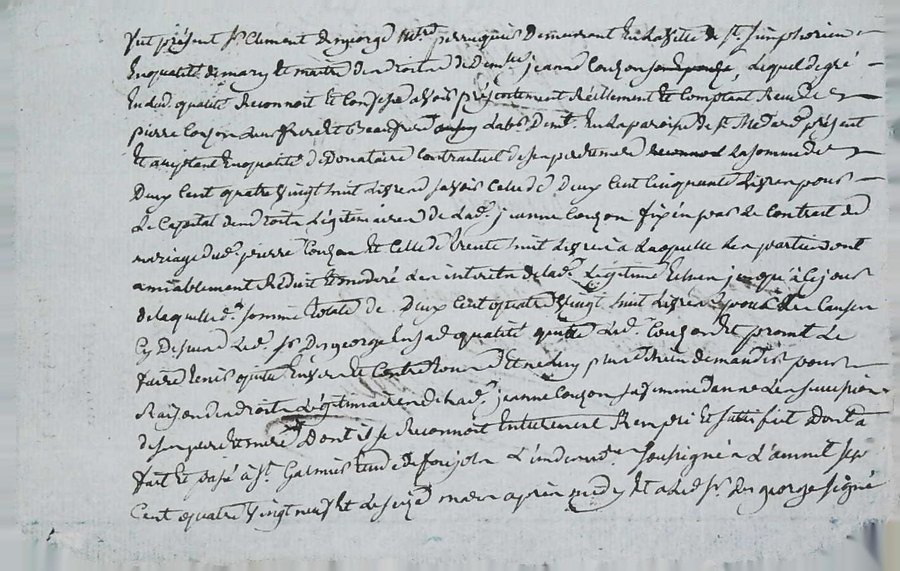 fut présent Sr Clement Desgeorge Mtre perruquier demeurant en la ville de St Simphorien
en qualité de mary et maitre des droits de demlle jeanne Couzon son epouse, lequel de gré
en lad. qualité reconnoit et confesse avoir présentement réellement et comptant receu de
pierre Couzon son frere et beaufrere lab. demt. en la paroisse de St Medard présent
et acceptant en qualité de donataire contractuel de ses pere et mere la somme de
deux cent quatre vingt huit livres savoir celle de deux cent cinquante livres pour
le capital des droits légitimaires de lad. jeanne Couzon fixés par le contrat de
mariage dud. pierre Couzon et celle de trente huit livres à laquelle les parties ont
amiablement réduit et modéré les interets de lad. légitime echus jusqu'à ce jour
de laquelle d. somme totale de deux cent quatre vingt huit livres pour les causes
cy dessus led. Sr Desgeorge en sad. qualité quitte led. Couzon et promet le
faire tenir quitte envers et contre tous et ne luy plus rien demander pour
raison des droits légitimaires de lad. jeanne Couzon sa femme dans les successions
de ses pere et mere dont il se reconnoit entierement rempli et satisfait dont acte
fait et passé à St Galmier etude de foujols l'un des nores soussigné l'an mil sept
cent quatre vingt neuf et le seize mars après midy et a led. Sr Desgeorge signé